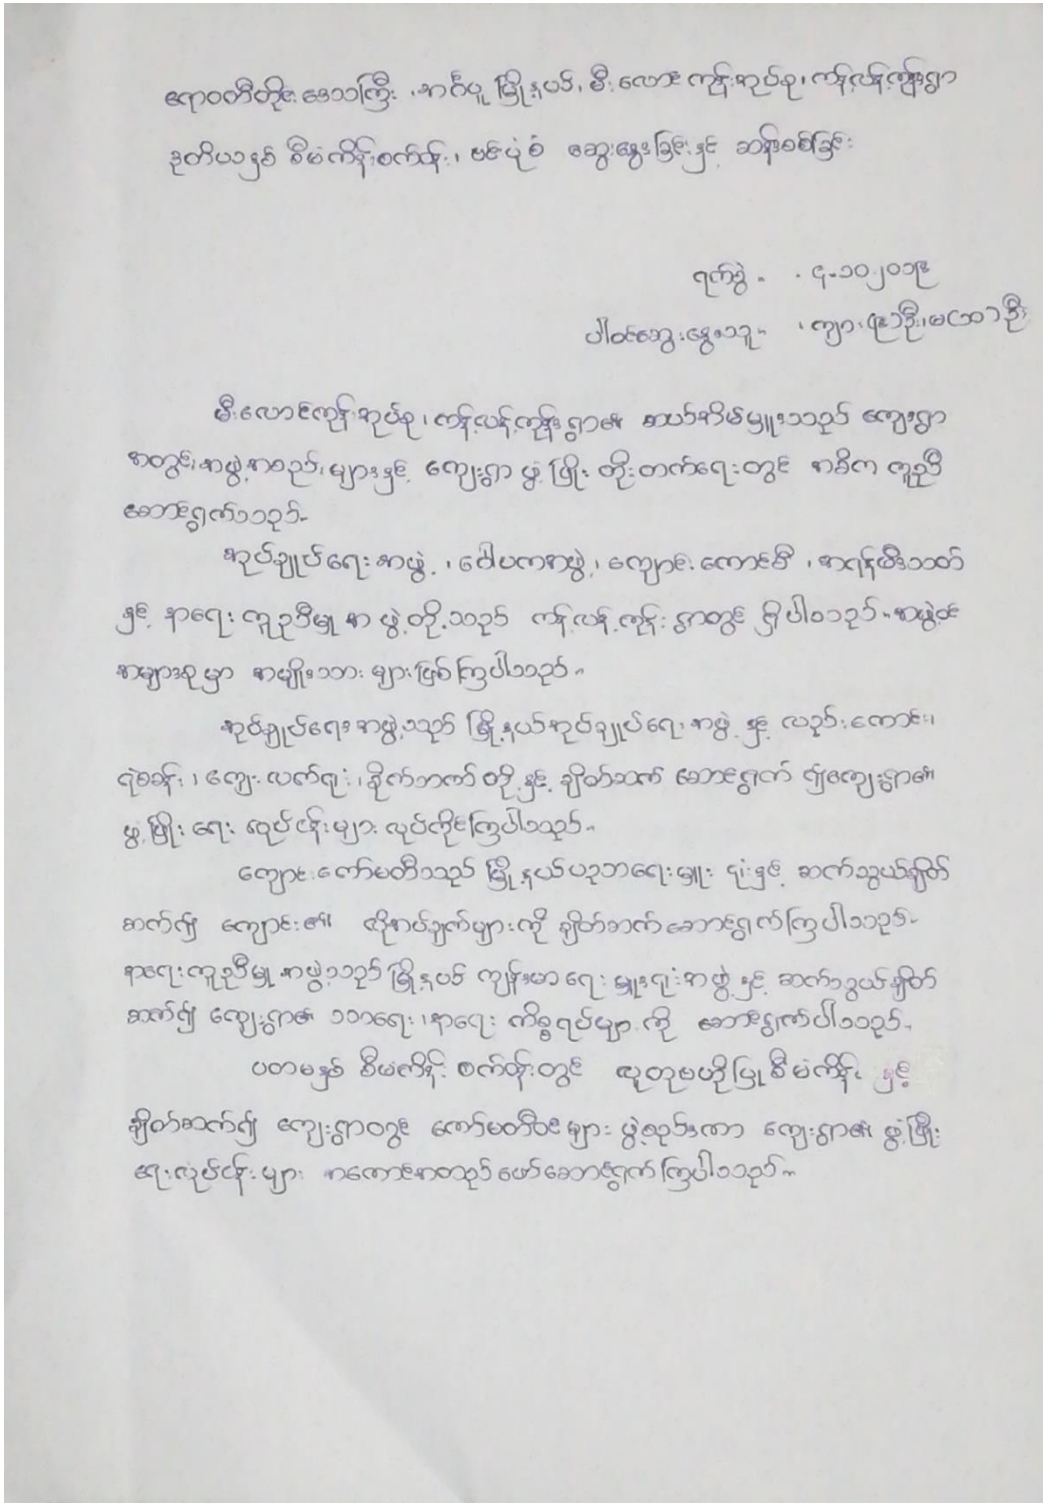 ဧရာဝတီတိုင်းဒေသကြီး ၊ အင်္ဂပူမြို့နယ်၊ မီးလောင်ကုန်းအုပ်စု၊ ကန့်လန့်ကုန်းရွာ
ဒုတိယနှစ် စီမံကိန်းစက်ဝန်း၊ ဗင်းပုံစံ ဆွေးနွေးခြင်းနှင့် ဆန်းစစ်ခြင်း
ရက်စွဲ - ၄-၁၀-၂၀၁၉
ပါဝင်ဆွေးနွေးသူ - ကျား ဦး၊ မ ဦး
မီးလောင်ကုန်းအုပ်စု ၊ ကန့်လန့်ကုန်းရွာ၏ ဆယ်အိမ်မှူးသည် ကျေးရွာ
အတွင်းအဖွဲ့အစည်းများနှင့် ကျေးရွာ ဖွံ့ဖြိုး တိုးတက်ရေးတွင် အဓိက ကူညီ
ဆောင်ရွက်သည်။
အုပ်ချုပ်ရေးအဖွဲ့ ၊ ဂေါပကအဖွဲ့၊ ကျောင်းကောင်စီ ၊ အရန်မီးသတ်
နှင့် နာရေးကူညီမှုအဖွဲ့တို့သည် ကန့်လန့်ကုန်းရွာတွင် ရှိပါသည်။ အဖွဲ့ဝင်
အများစုမှာ အမျိုးသားများဖြစ်ကြပါသည်။
အုပ်ချုပ်ရေးအဖွဲ့သည် မြို့နယ်အုပ်ချုပ်ရေးအဖွဲ့ နှင့် လည်းကောင်း၊
ရဲစခန်း ၊ ကျေးလက်ရုံး ၊ စိုက်ဘဏ် တို့နှင့် ချိတ်ဆက် ဆောင်ရွက် ၍ ကျေးရွာ၏
ဖွံ့ဖြိုးရေး လုပ်ငန်းများ လုပ်ကိုင်ကြပါသည်။
ကျောင်းကော်မတီသည် မြို့နယ်ပညာရေးမှူး ရုံးနှင့် ဆက်သွယ်ချိတ်
ဆက်၍ ကျောင်း၏ လိုအပ်ချက်များကို ချိတ်ဆက်ဆောင်ရွက်ကြပါသည်။
နာရေးကူညီမှုအဖွဲ့သည် မြို့နယ် ကျန်းမာရေးမှူးရုံးအဖွဲ့နှင့် ဆက်သွယ်ချိတ်
ဆက်၍ ကျေးရွာ၏ သာရေး ၊ နာရေး ကိစ္စရပ်များကို ဆောင်ရွက်ပါသည်။
ပထမနှစ် စီမံကိန်း စက်ဝန်းတွင် လူထုဗဟိုပြုစီမံကိန်း နှင့်
ချိတ်ဆက်၍ ကျေးရွာတွင် ကော်မတီဝင်များ ဖွဲ့စည်းကာ ကျေးရွာ၏ ဖွံ့ဖြိုး
ရေးလုပ်ငန်းများ အကောင်အထည်ဖော်ဆောင်ရွက်ကြပါသည်။